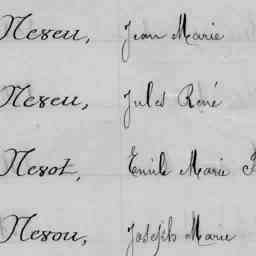 Nexeu, Jean Marie
Nexeu, Jules René
Nexot, Emile Marie
Nexou, Joseph Marie